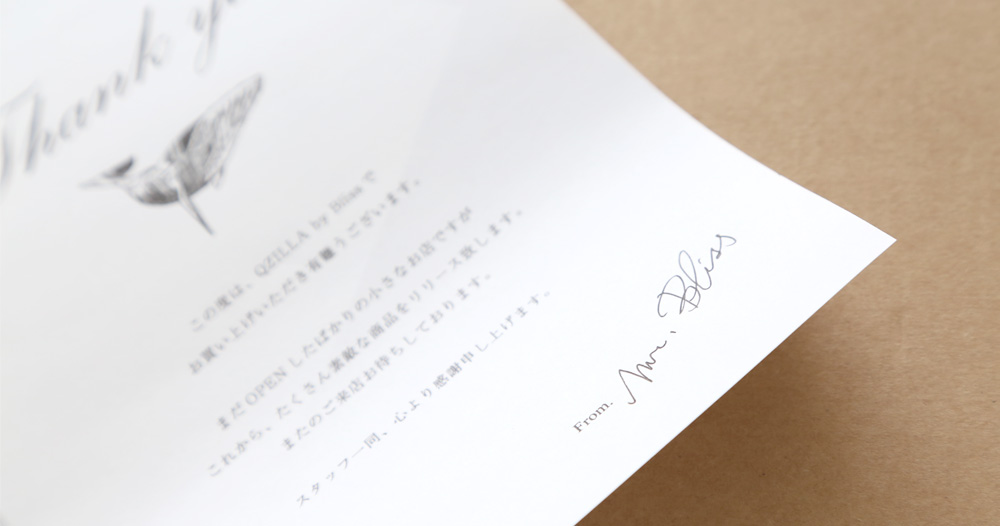 Thank
この度は、QZILLA by Blissで
お買い上げいただき有難うございます。
まだOPENしたばかりの小さなお店ですが
これから、たくさん素敵な商品をリリース致します。
またのご来店お待ちしております。
スタッフ一同、心より感謝申し上げます。
From. Mr. Bliss